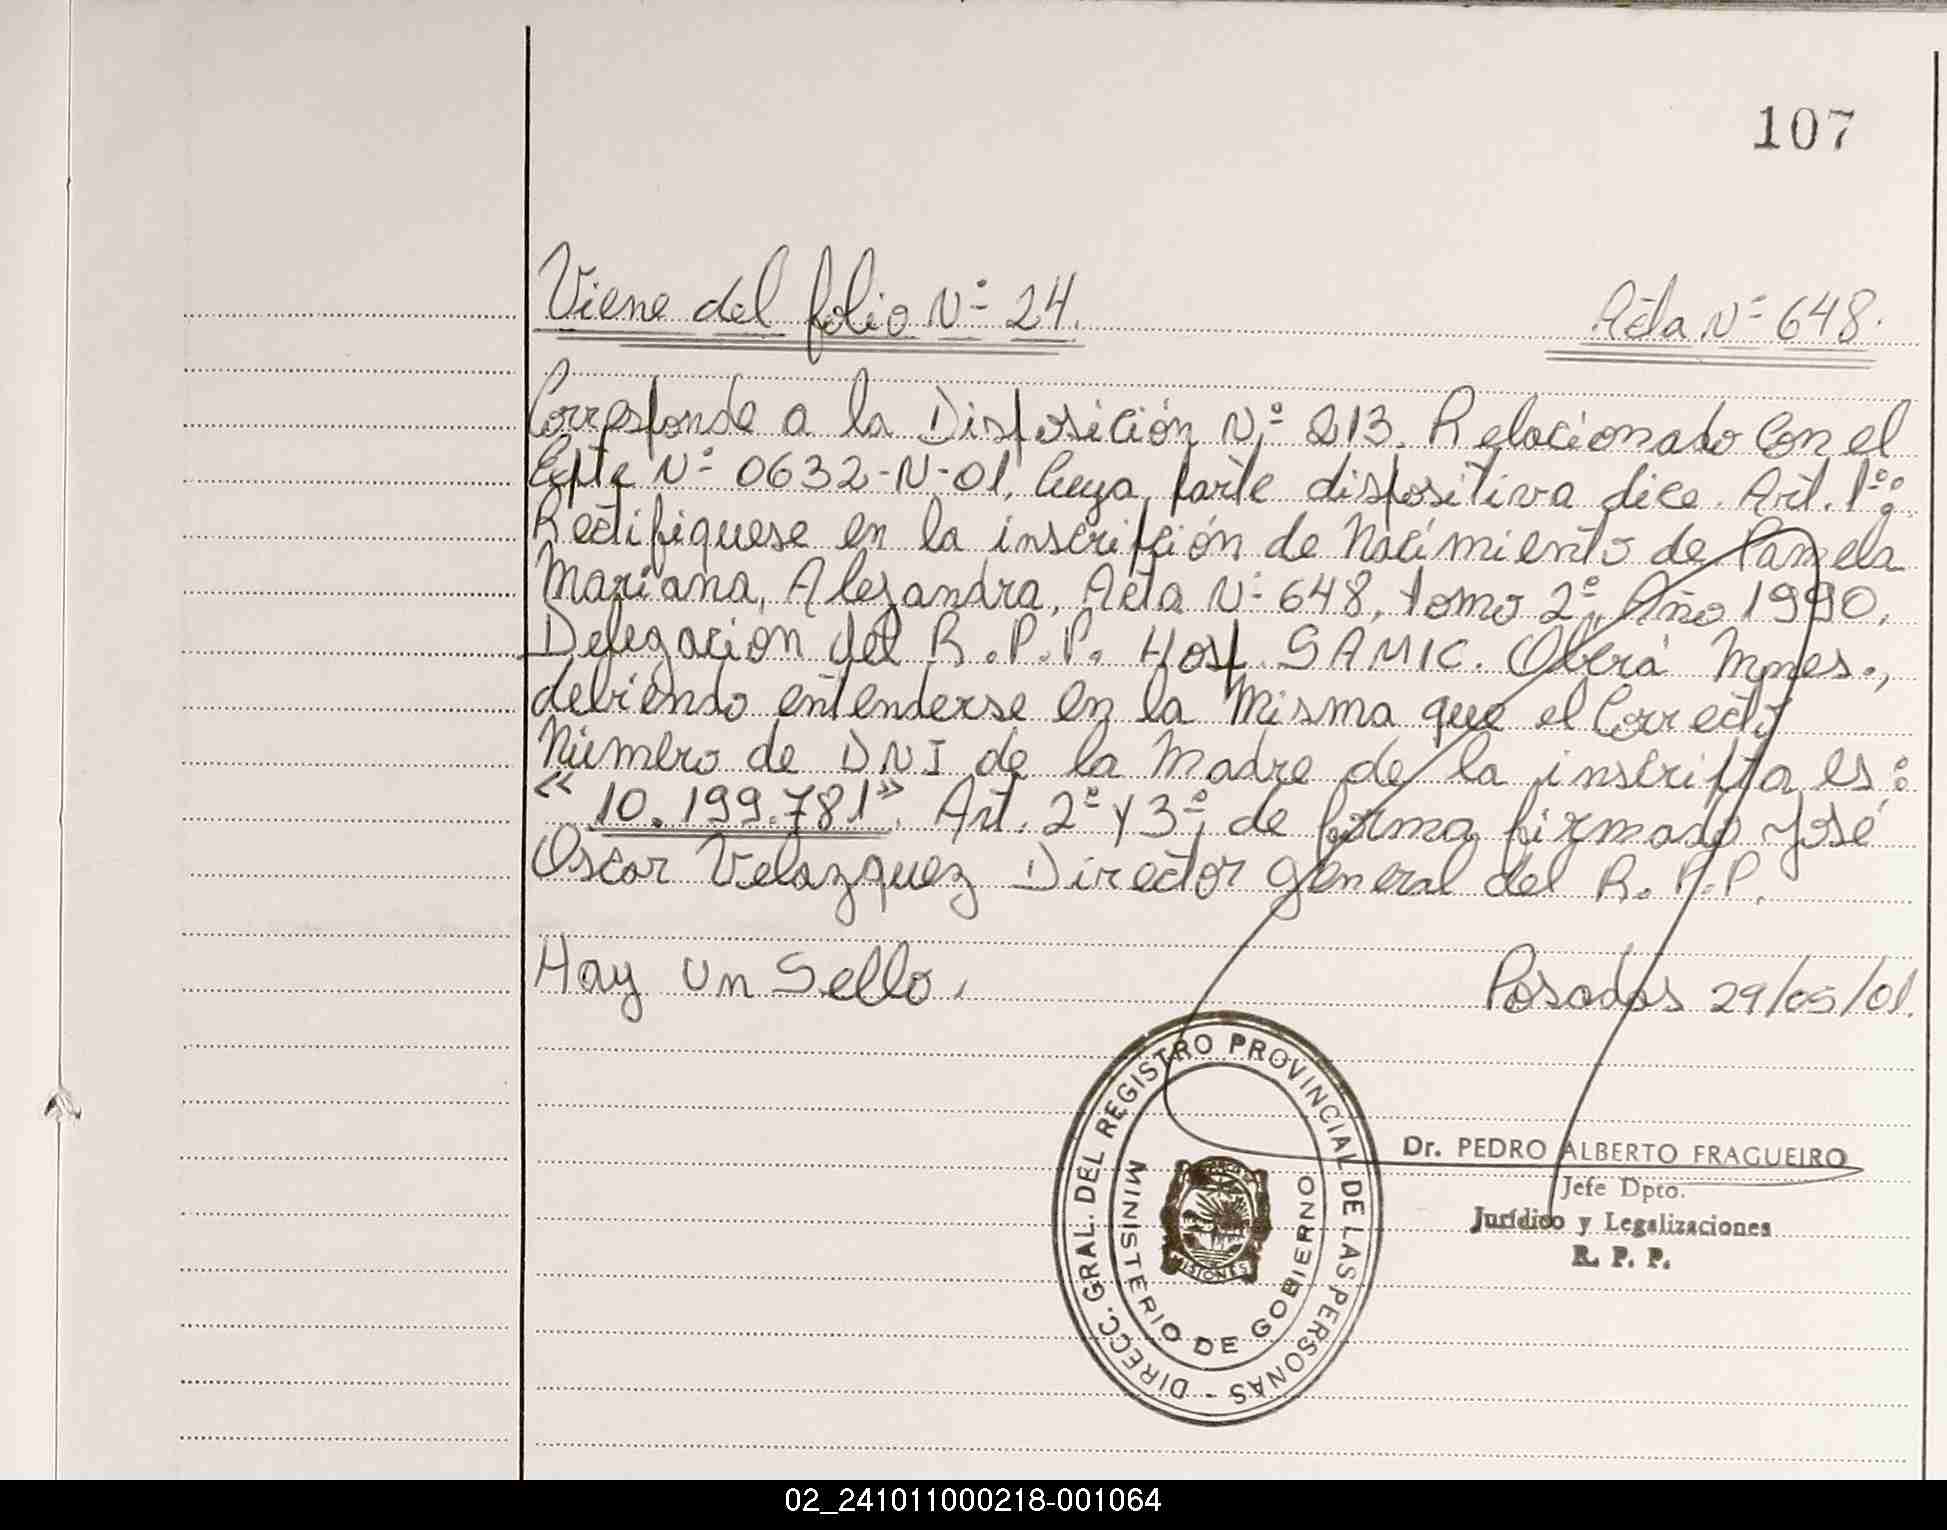 107
Viene del folio Nº 24. Acta Nº 648.
Corresponde a la Disposición Nº 213. Relacionado Con el
Expte Nº 0632-N-01, Cuya parte dispositiva dice. Art. 1º:
Rectifiquese en la inscripción de Nacimiento de Pamela
Mariana, Alejandra, Acta Nº 648, tomo 2º, Año 1990,
Delegacion del R.P.P. Hosp. SAMIC. Oberá Mnes.,
debiendo entenderse en la Misma que el Correcto
Número de DNI de la Madre de la inscripta es:
"10.199.781". Art. 2º y 3º, de forma, firmado José
Oscar Velazquez Director general del R.P.P.
Hay un Sello. Posadas 29/05/01.
DIRECC. GRAL. DEL REGISTRO PROVINCIAL DE LAS PERSONAS -
MINISTERIO DE GOBIERNO
MISIONES
Dr. PEDRO ALBERTO FRAGUEIRO
Jefe Dpto.
Jurídico y Legalizaciones
R. P. P.
02_241011000218-001064